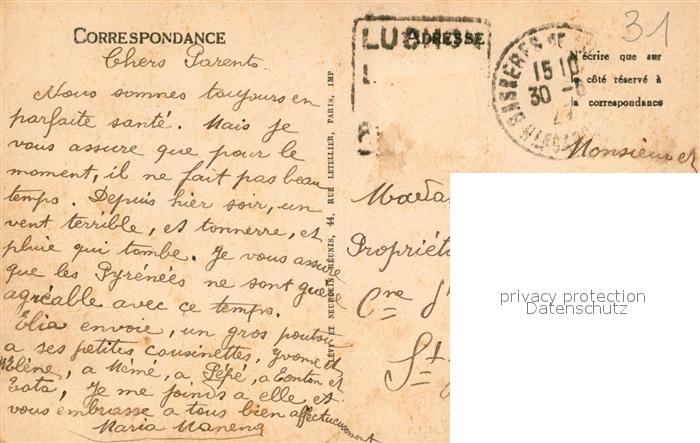 31
CORRESPONDANCE
ADRESSE
N'écrire que sur
le côté réservé à
la correspondance
LUCHON
BAGNÈRES DE
15 10
30 -
Chers Parents
Nous sommes toujours en
parfaite santé. Mais je
vous assure que pour le
moment, il ne fait pas beau
temps. Depuis hier soir, un
vent terrible, et tonnerre, et
pluie qui tombe. Je vous assure
que les Pyrénées ne sont guère
agréable avec ce temps.
Elia envoie, un gros poutou
a ses petites cousinettes, Yvonne et
Hélène, a Mémé, a Pépé, a Tonton et
Tata, Je me joinds a elle et
vous embrasse a tous bien affectueusement
Maria
LÉVY ET NEURDEIN RÉUNIS, 44, RUE LETELLIER, PARIS, IMP
Monsieur et
Madam
Propriét
Cne d'
St
privacy protection
Datenschutz